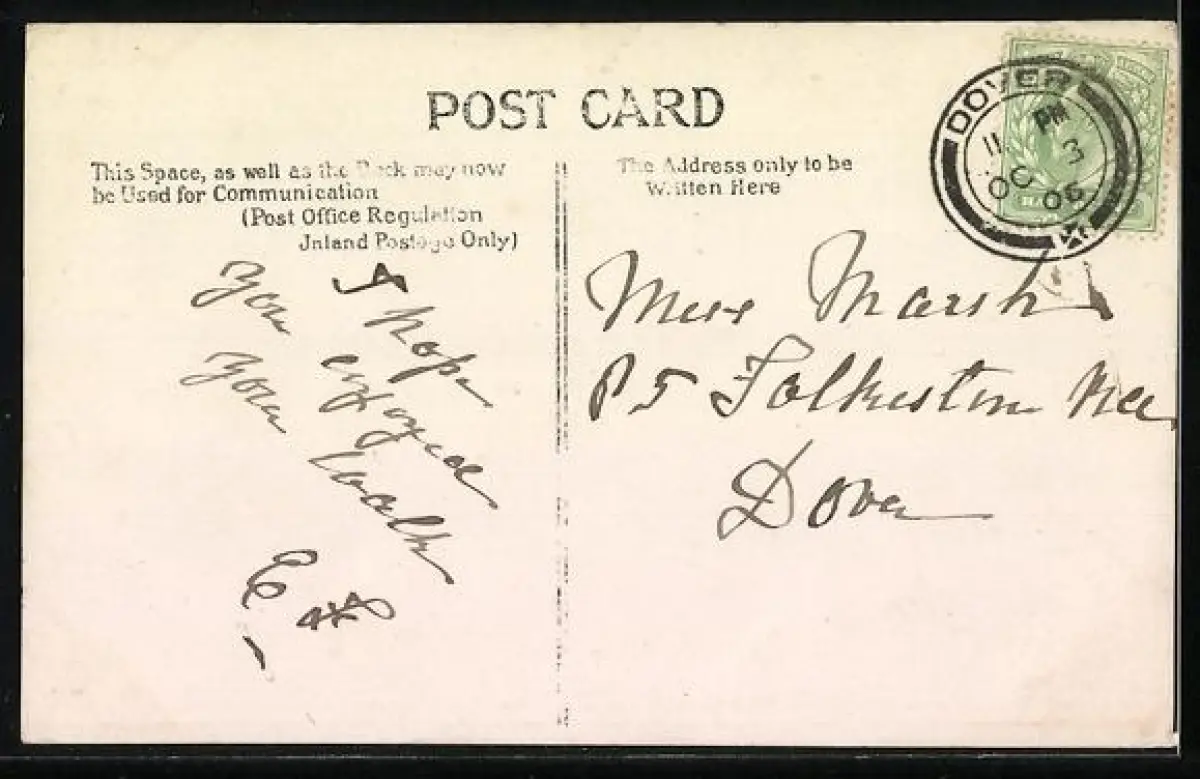 POST CARD
This Space, as well as the Back may now
be Used for Communication
(Post Office Regulation
Inland Postage Only)
The Address only to be
Written Here
DOVER
11 PM
OC 3
06
I hope
you enjoyed
your walk
Miss Marsh
85 Folkestone
Dover